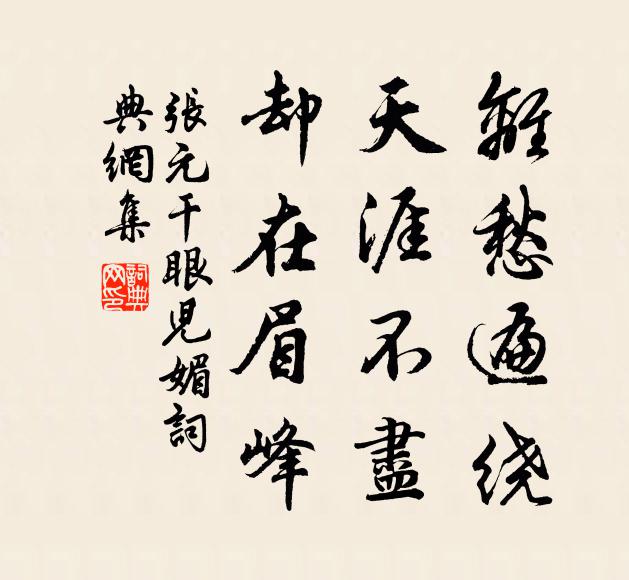 離愁遍绕
天涯不盡
却在眉峰
張元干眼児媚詞
典網集
詞典网印